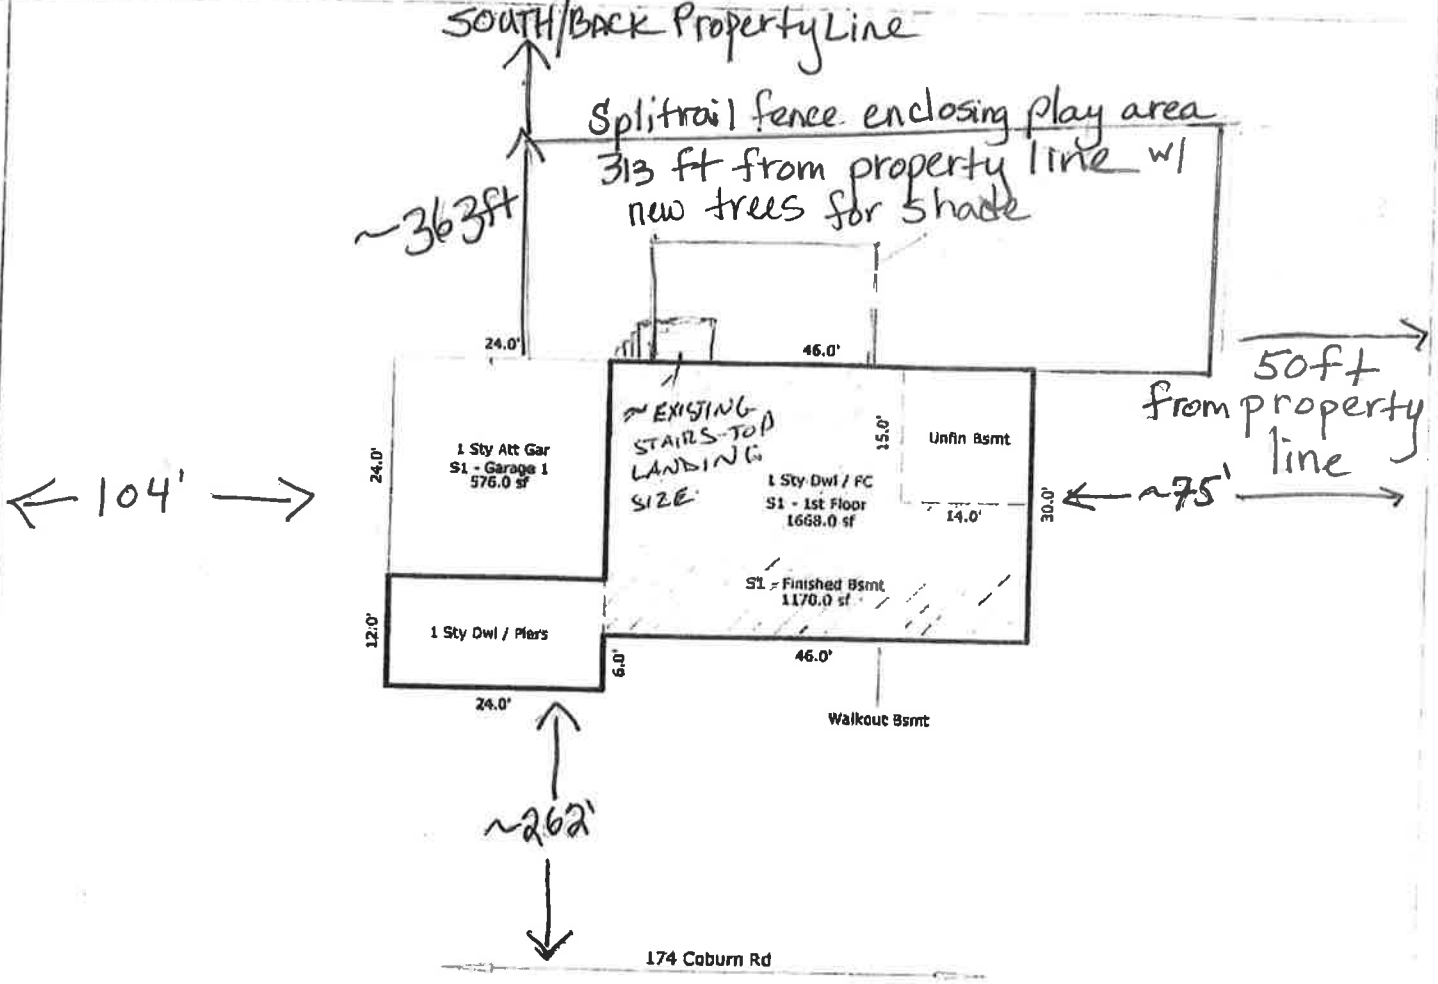 SOUTH/BACK Property Line
Splitrail fence enclosing play area
313 ft from property line w/
new trees for shade
~363ft
24.0'
46.0'
50ft
from property
line
~EXISTING
STAIRS-TOP
LANDING
SIZE
15.0'
Unfin Bsmt
24.0'
1 Sty Att Gar
S1 - Garage 1
576.0 sf
1 Sty Dwl / FC
S1 - 1st Floor
1668.0 sf
14.0'
30.0'
104'
~75'
S1 - Finished Bsmt
1170.0 sf
12.0'
1 Sty Dwl / Piers
6.0'
46.0'
24.0'
Walkout Bsmt
~262'
174 Coburn Rd